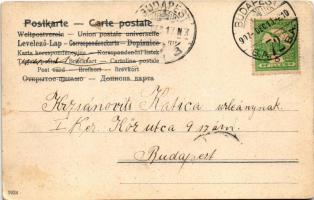 Postkarte — Carte postale
Weltpostverein — Union postale universelle
Levelező-Lap — Correspondenzkarte — Dopisnice
Karta korespondencyjna — Korespondenční lístek
Cartolina postale
Post card — Brefkort — Brevkort
Открытое письмо — Дописна карта
BUDAPEST
BUDAPEST
Krzsianovits Katica urleánynak
I. Ker. Kör utca 9 szám.
Budapest